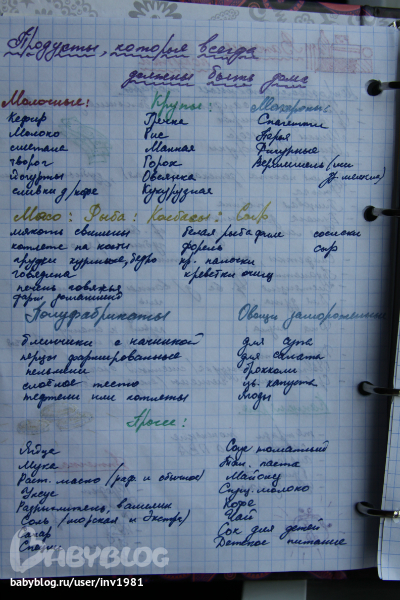 Продукты, которые всегда
должны быть дома
Молочные: Крупы: Макароны:
Кефир Гречка Спагетти
Молоко Рис Перья
сметана Манная Фигурные
творог Горох Вермишель (или
Йогурты Овсянка
сливки д/кофе Кукурузная
Мясо: Рыба: Колбасы: Сыр
мякоть свинины белая рыба филе сосиски
котлета на кости форель сыр
грудки куриные, бедро кр. палочки
говядина креветки очищ
печень говяжья
фарш домашний
Полуфабрикаты Овощи замороженные
блинчики с начинкой для супа
перцы фаршированные для салата
пельмени брокколи
слоёное тесто цв. капуста
тефтели или котлеты ягоды
Прочее:
Яйца Соус томатный
Мука Том. паста
Раст. масло (раф. и обычное) Майонез
Уксус Сгущ. молоко
Разрыхлитель, ванилин Кофе
Соль (морская и экстра) Чай
Сахар Сок для детей
Детское питание
BABYBLOG
babyblog.ru/user/inv1981